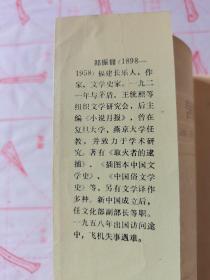 郑振铎(1898—
1958)福建长乐人，作
家，文学史家。一九二
一年与茅盾、王统照等
组织文学研究会，后主
编《小说月报》，曾在
复旦大学、燕京大学任
教，并致力于学术研
究。著有《取火者的逮
捕》、《插图本中国文
学史》、《中国俗文学
史》等，另有文学译作
多种。新中国成立后，
任文化部副部长等职。
一九五八年出国访问途
中，飞机失事遇难。